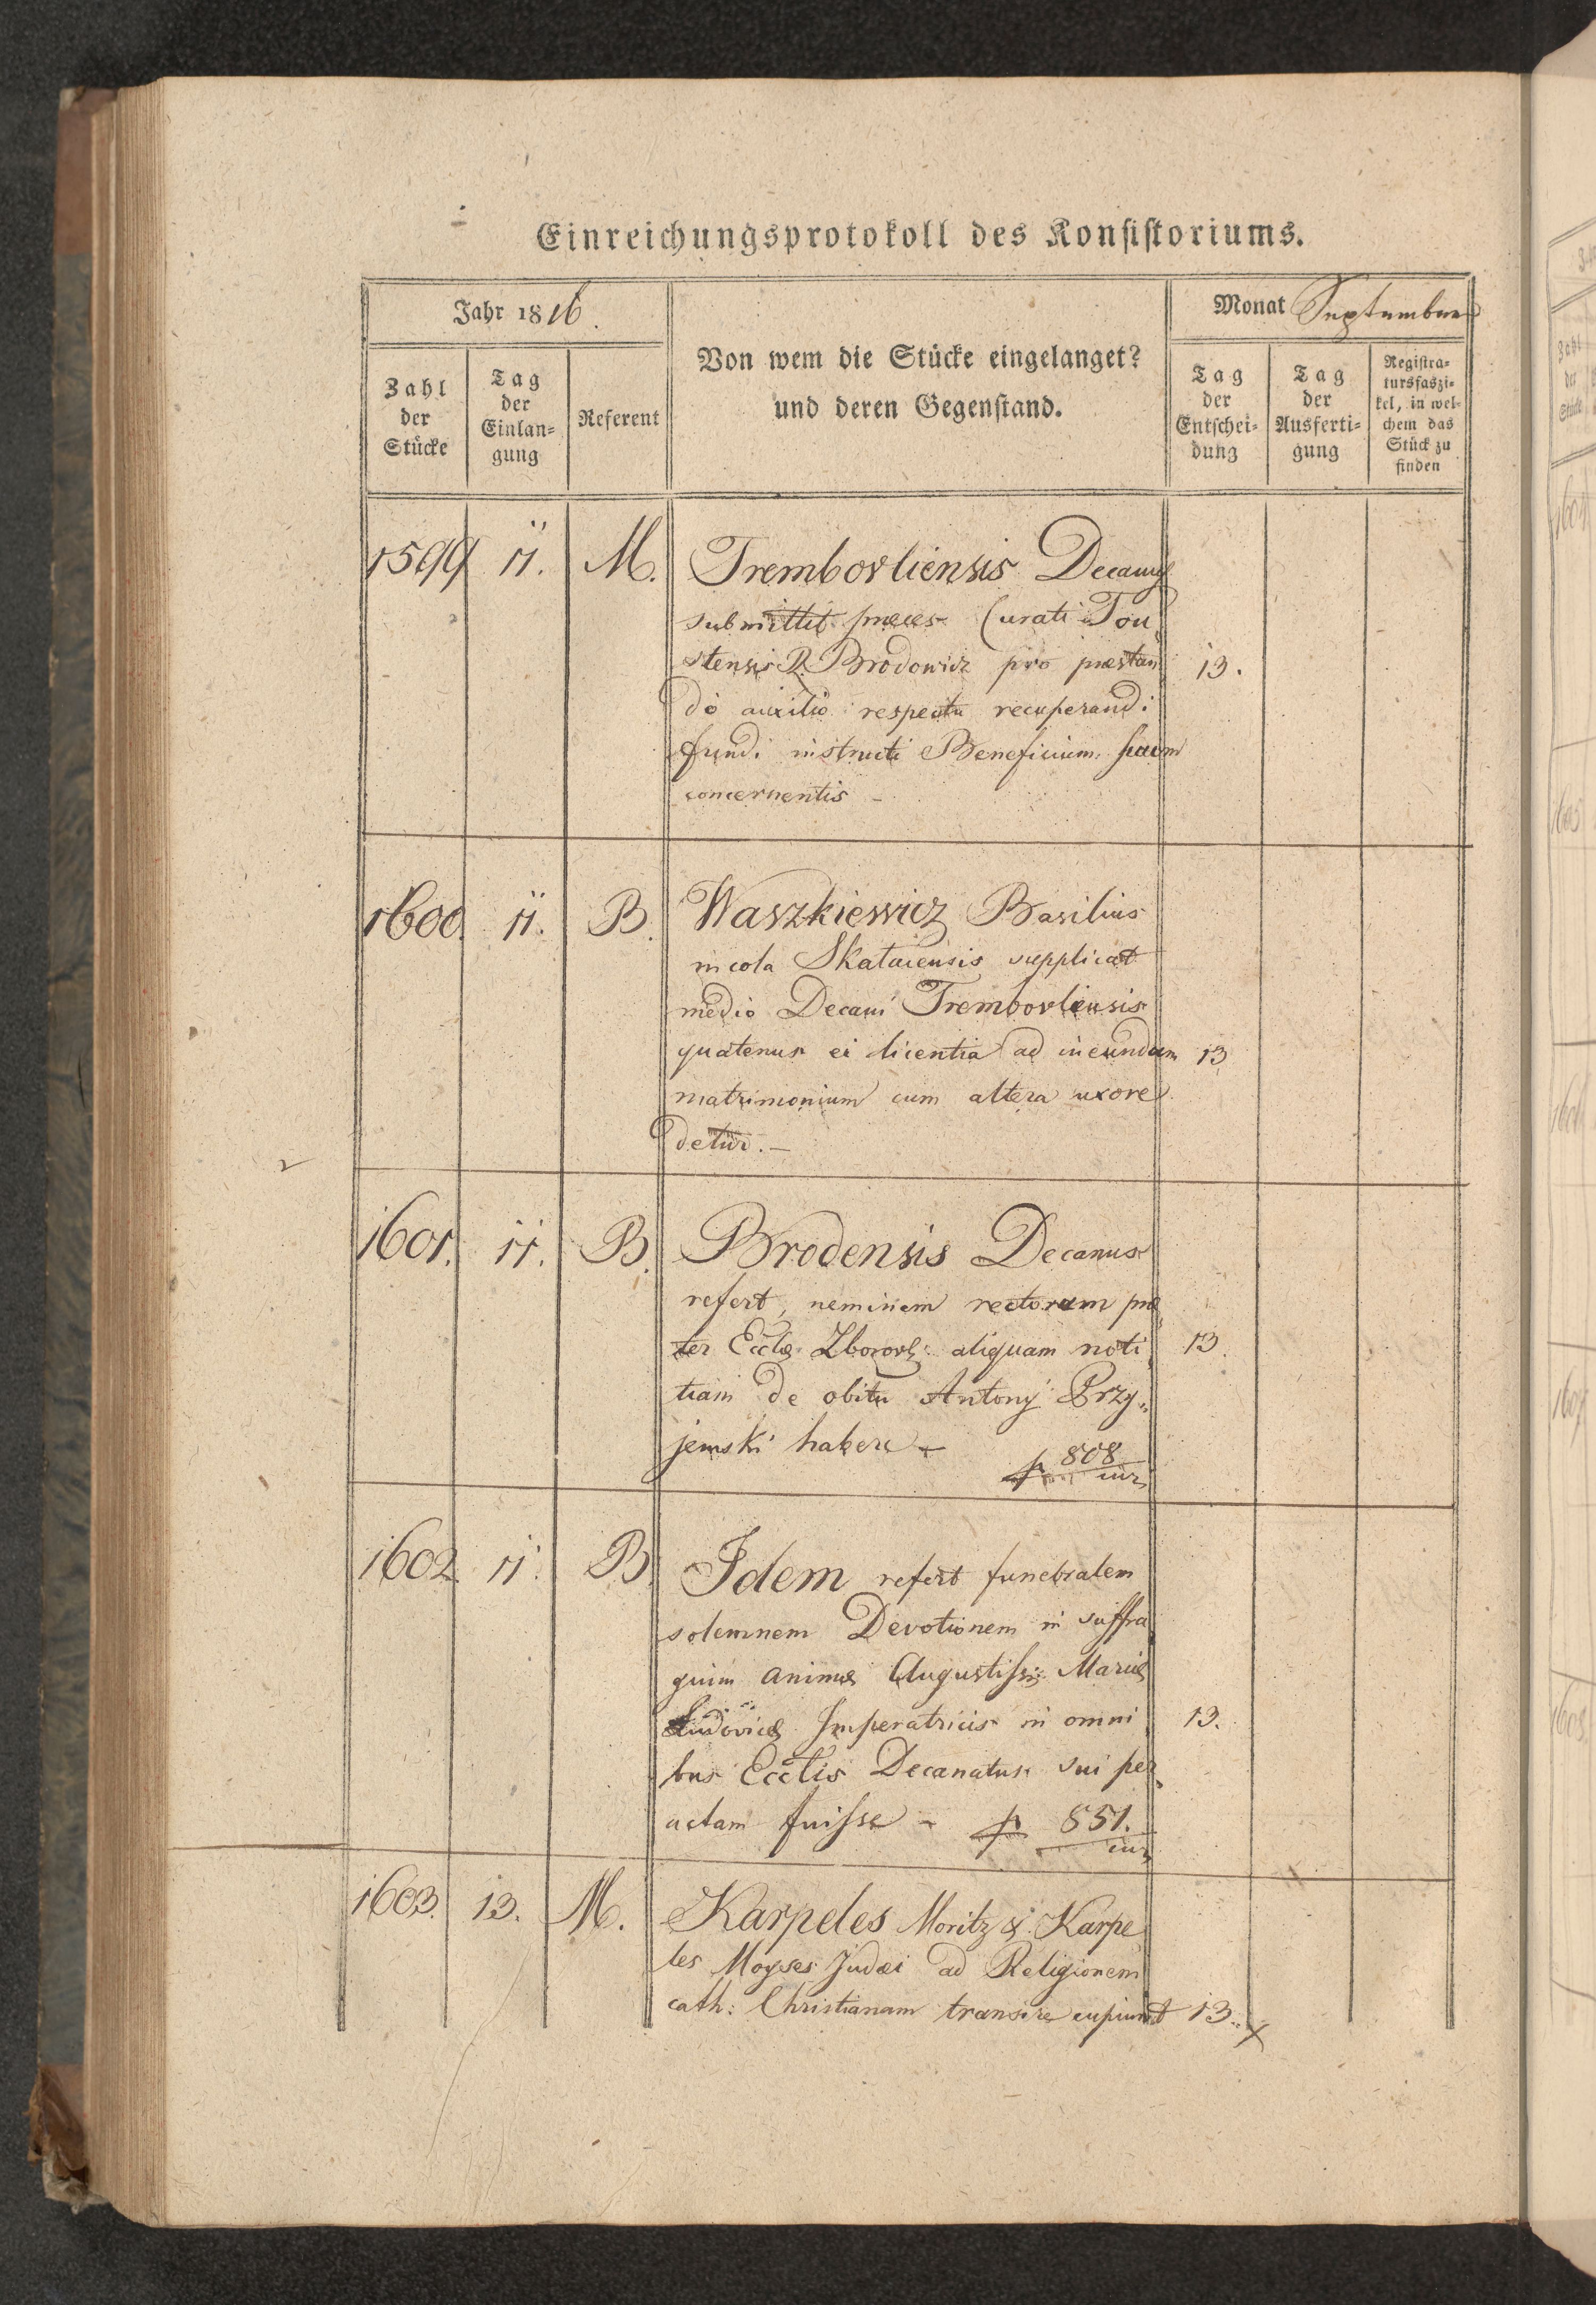 Einreichungsprotokoll des Konsistoriums.
Jahr 1816.
Monat September
Zahl der Stücke
Tag der Einlan= gung
Referent
Von wem die Stücke eingelanget?
und deren Gegenstand.
Tag der Entschei= dung
Tag der Ausferti= gung
Registra= tursfaszi= kel, in wel= chem das Stück zu finden
1599 11. M. Trembovliensis Decanus
submittit preces Curati Tou
stensis R. Brodowicz pro præstan 13.
do auxilio respectu recuperandi
fundi instructi Beneficium suum
concernentis –
1600. 11. B. Waszkiewicz Basilius
incola Skataiensis supplicat
medio Decani Trembovliensis
quatenus ei licentia ad ineundum 13
matrimonium cum altera uxore
detur. –
1601. 11. B. Brodensis Decanus
refert, neminem rectorum præ
ter Ecclæ Zborovs: aliquam noti 13.
tiam de obitu Antonÿ Przy„
jemski habere – p 808
1602. 11. B. Idem refert funebralem
solemnem Devotionem in suffra
guim animæ Augustissæ: Mariæ
Ludovicæ Imperatricis in omni 13.
bus Ecclis Decanatus sui per
actam fuisse – p 851.
1603. 13. M. Karpeles Moritz & Karpe
les Moyses Judæi ad Religionem
cath: Christianam transire cupiunt 13.. x